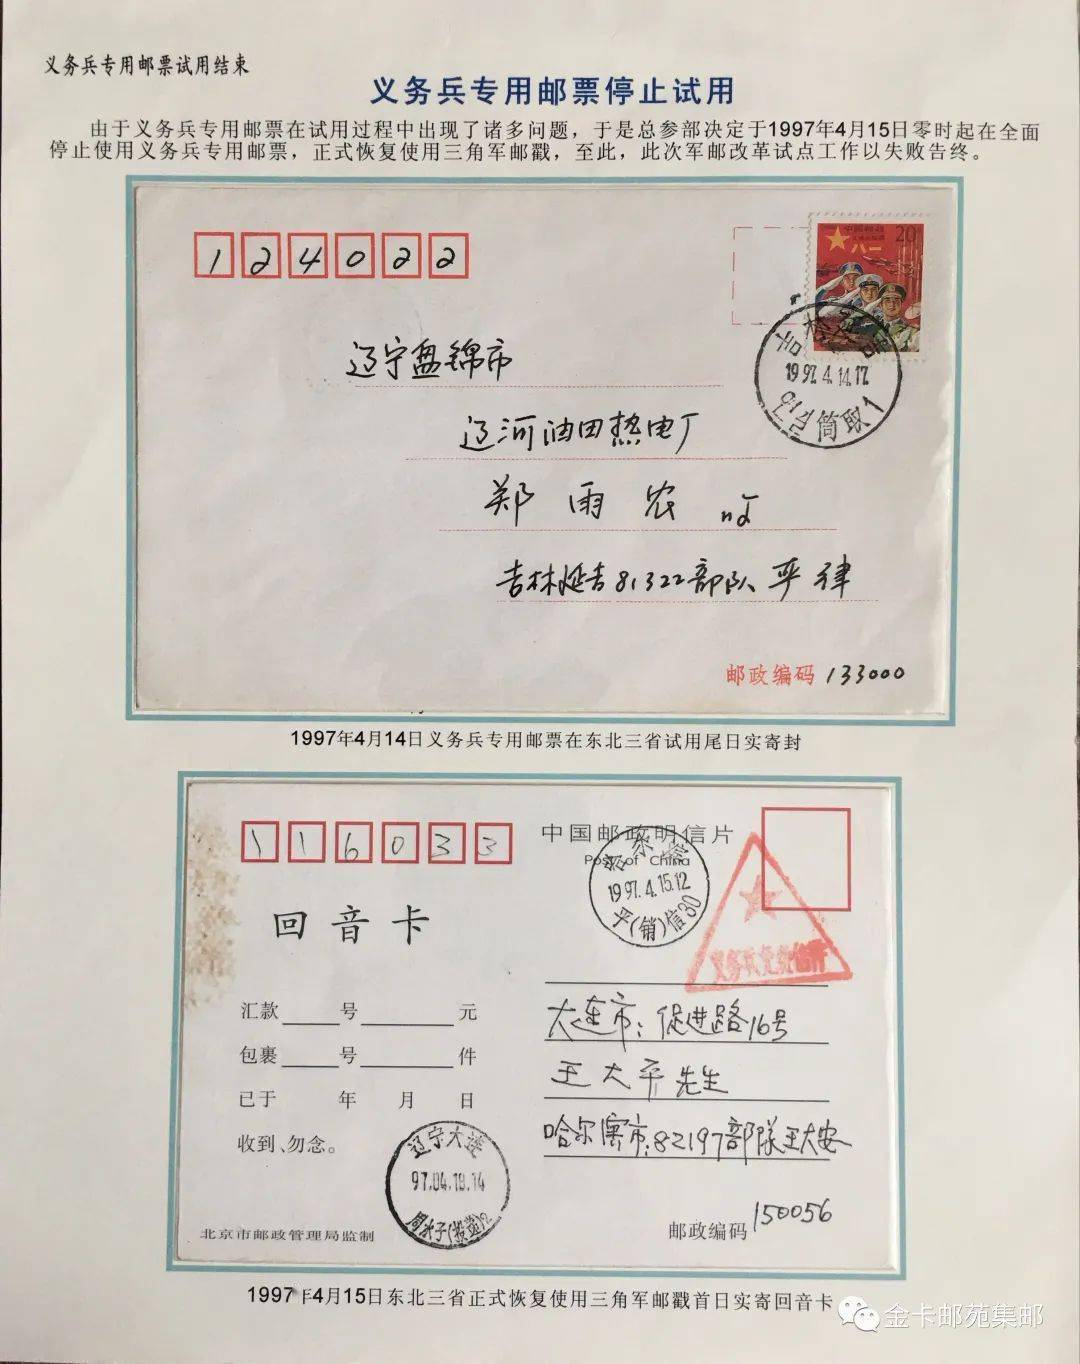 义务兵专用邮票试用结束
义务兵专用邮票停止试用
由于义务兵专用邮票在试用过程中出现了诸多问题，于是总参部决定于1997年4月15日零时起在全面
停止使用义务兵专用邮票，正式恢复使用三角军邮戳，至此，此次军邮改革试点工作以失败告终。
124022
中国邮政
20
八一
辽宁盘锦市
1997.4.14.17
筒取1
辽河油田热电厂
郑雨农收
吉林延吉81322部队 严律
邮政编码 133000
1997年4月14日义务兵专用邮票在东北三省试用尾日实寄封
116033
中国邮政明信片
Post of China
1997.4.15.12
平(销)信30
义务兵免费信件
回音卡
汇款 号 元
包裹 号 件
已于 年 月 日
收到、勿念。
大连市：促进路16号
王大平先生
哈尔滨市：82197部隊王大安
辽宁大连
97.04.18.14
周水子(投递)2
北京市邮政管理局监制
邮政编码 150056
1997年4月15日东北三省正式恢复使用三角军邮戳首日实寄回音卡
金卡邮苑集邮